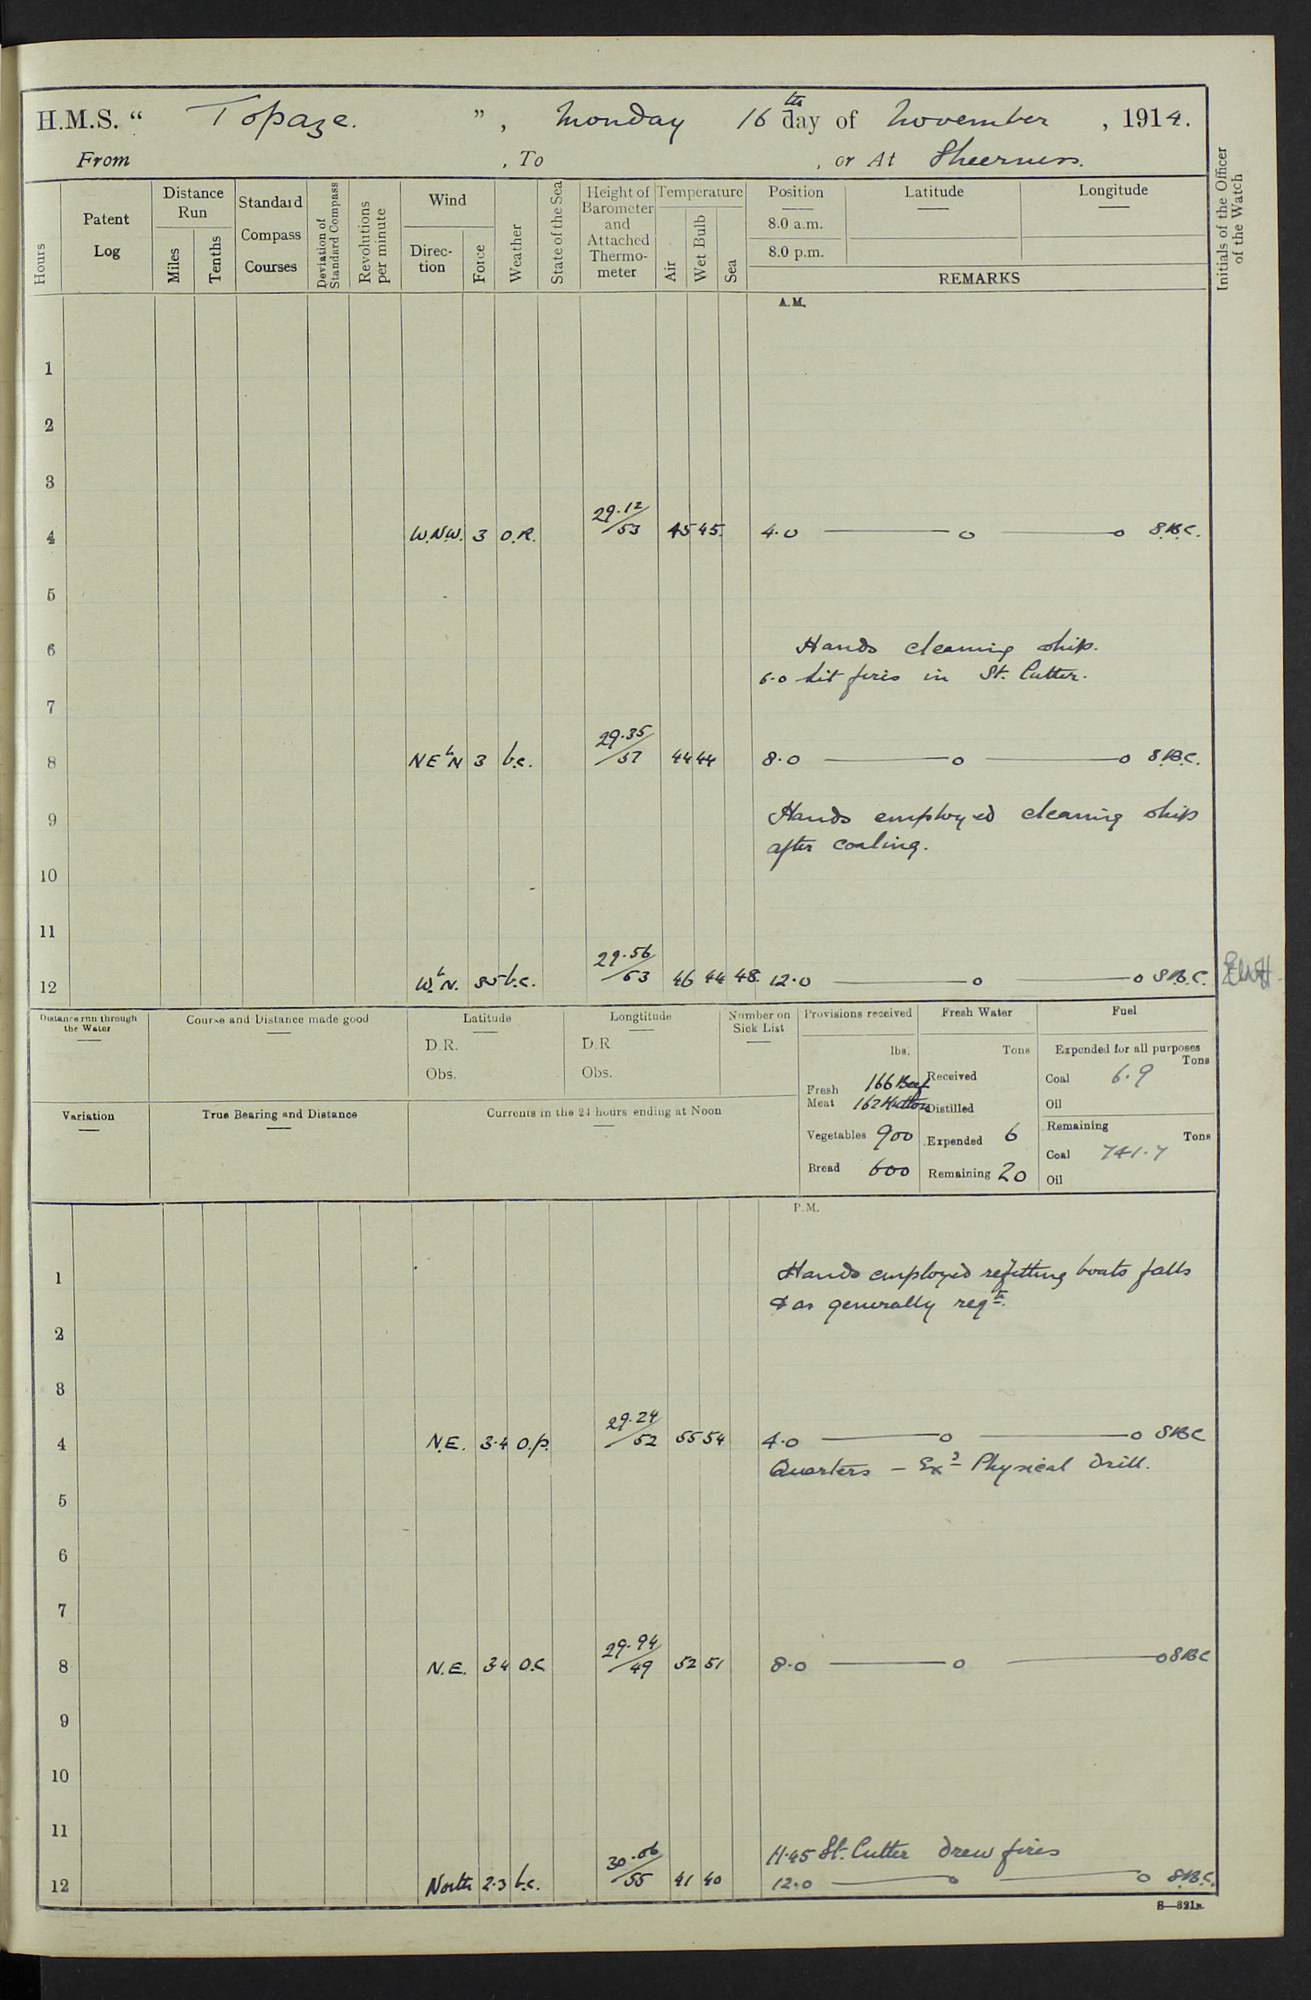 H.M.S. “ Topaze. ” , Monday 16th day of November , 1914.
From , To , or At Sheerness.
Hours
Patent Log
Distance Run
Miles
Tenths
Standard Compass Courses
Deviation of Standard Compass
Revolutions per minute
Wind
Direc-tion
Force
Weather
State of the Sea
Height of Barometer and Attached Thermo-meter
Temperature
Air
Wet Bulb
Sea
Position Latitude Longitude
8.0 a.m.
8.0 p.m.
REMARKS
Initials of the Officer of the Watch
A.M.
1
2
3
4 W.N.W. 3 O.R. 29.12/53 45 45. 4.0 S.B.C.
5
6 Hands cleaning ship.
6.0 Lit fires in St. Cutter.
7
8 NE b N 3 b.c. 29.35/57 44 44 8.0 S.B.C.
9 Hands employed cleaning ship
after coaling.
10
11
12 W. b N. b.c. 29.56/53 46 44 48. 12.0 S.B.C.
Distance run through the Water
Course and Distance made good
Latitude
D.R.
Obs.
Longtitude
D.R
Obs.
Number on Sick List
Provisions received
lbs.
Fresh Meat 166 Beef
162 Mutton
Vegetables 900
Bread 600
Fresh Water
Tons
Received
Distilled
Expended 6
Remaining 20
Fuel
Expended for all purposes
Tons
Coal 6.9
Oil
Remaining
Tons
Coal 741.7
Oil
Variation
True Bearing and Distance
Currents in the 24 hours ending at Noon
P.M.
1 Hands employed refitting boats falls
& as generally reqte.
2
3
4 N.E. 3.4 O.p. 29.24/52 55 54 4.0 SBC
Quarters – Exd Physical Drill.
5
6
7
8 N.E. 3.4 O.C 29.94/49 52 51 8.0 SBC
9
10
11 11.45 St. Cutter drew fires
12 North 2.3 b.c. 30.06/55 41 40 12.0 S.B.C.
S—321B.